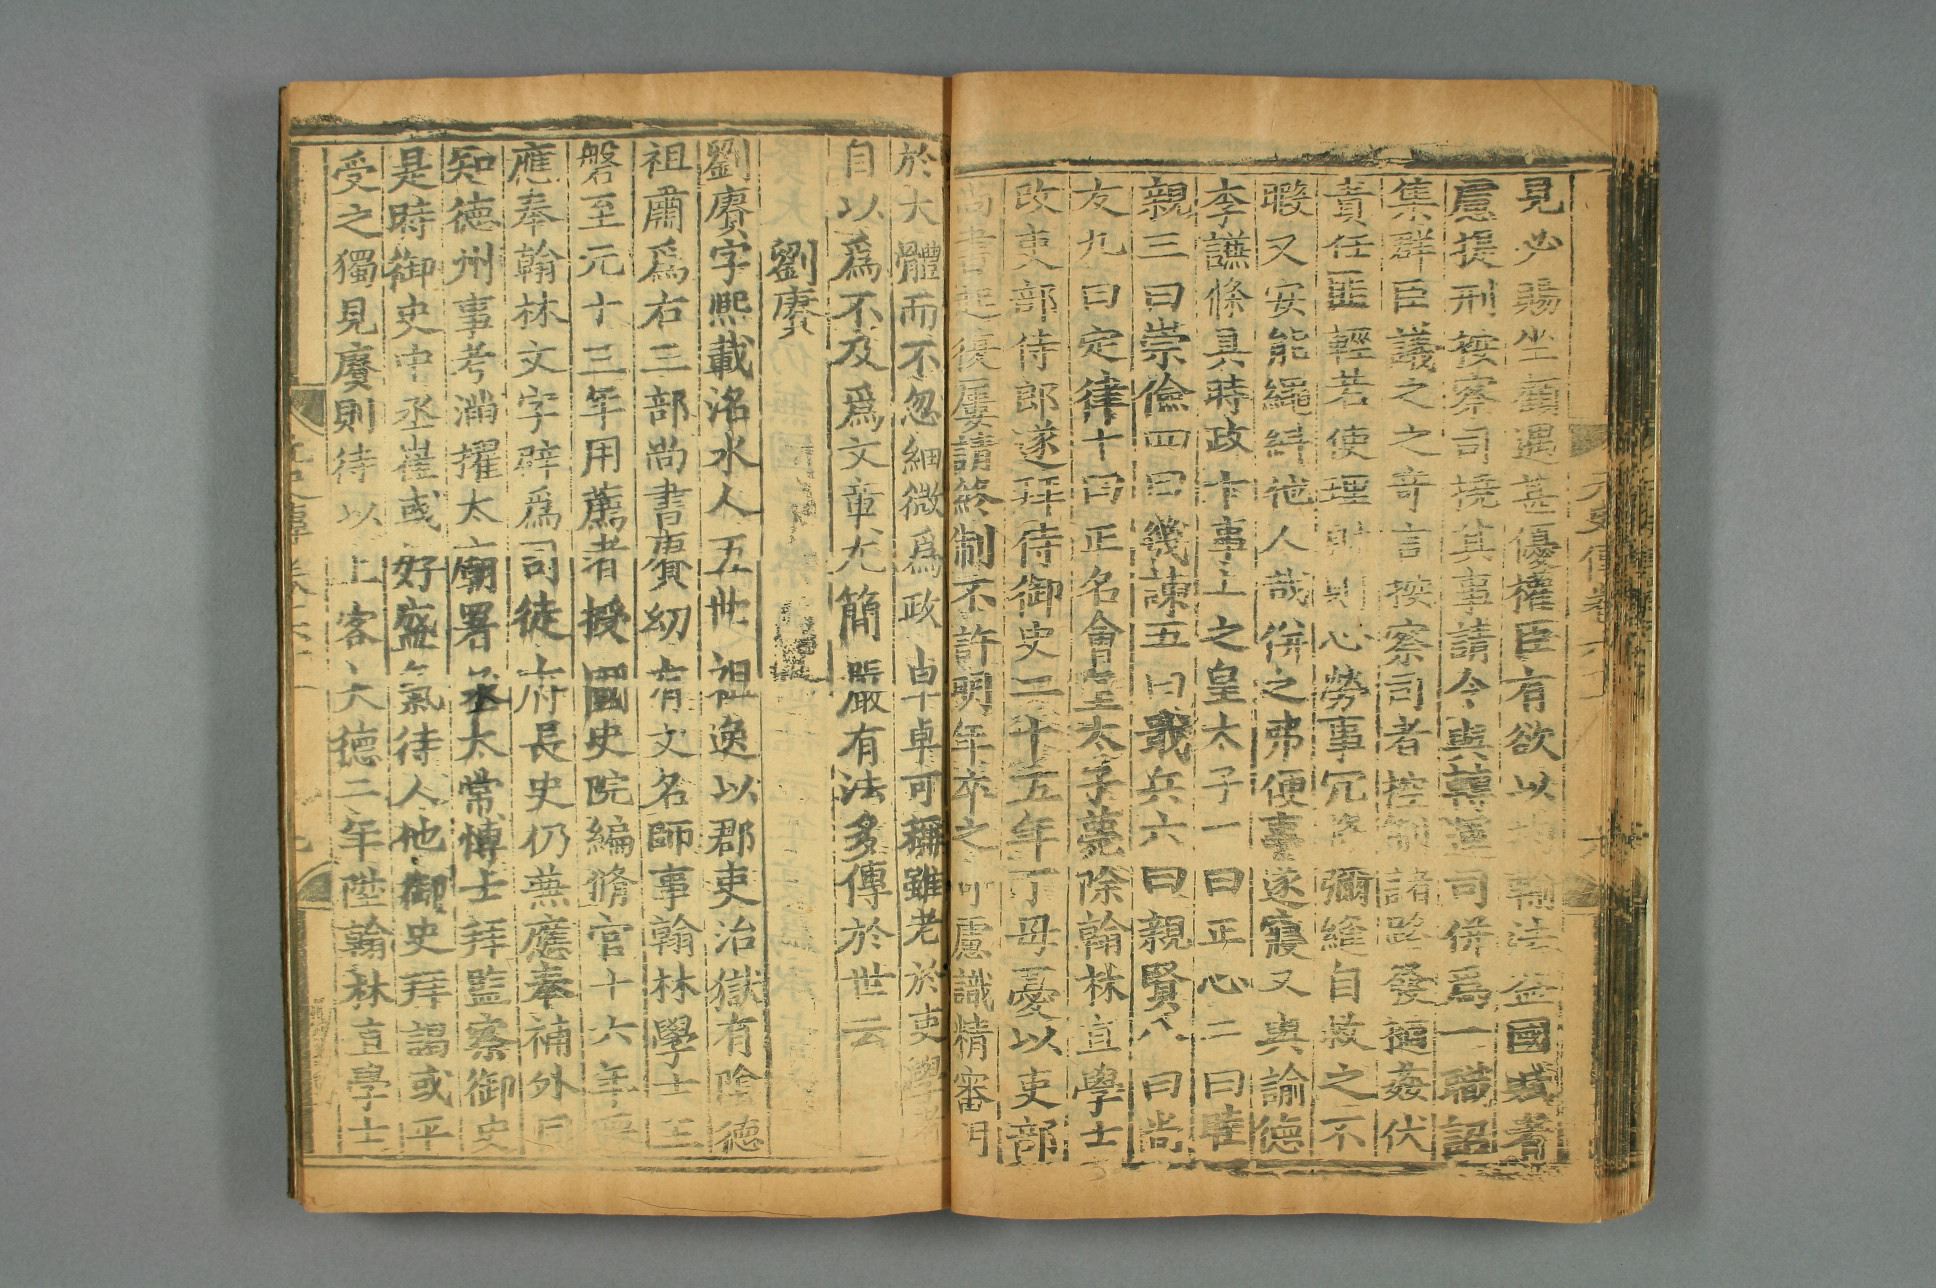 見必賜坐顧遇甚優權臣有欲以均輸法益國賦者
慮提刑按察司撓其事請令與轉運司併爲一職詔
集群臣議之之奇言按察司者控制諸路發擿姦伏
責任匪輕若使理財則心勞事冗將彌縫自救之不
暇又安能繩糾他人哉併之弗便事遂寢又與諭德
李謙條具時政十事上之皇太子一曰正心二曰睦
親三曰崇儉四曰幾諫五曰戢兵六曰親賢八曰尚
友九曰定律十曰正名會皇太子薨除翰林直學士
改吏部侍郎遂拜侍御史二十五年丁母憂以吏部
尚書起復屢請終制不許明年卒之奇慮識精審明
於大體而不忽細微爲政卓卓可稱雖老於吏學者
自以爲不及爲文章尤簡嚴有法多傳於世云
劉賡
劉賡字熙載洺水人五世祖逸以郡吏治獄有陰德
祖肅爲右三部尚書賡幼有文名師事翰林學士王
磐至元十三年用薦者授國史院編脩官十六年遷
應奉翰林文字辟爲司徒府長史仍兼應奉補外同
知德州事考滿擢太廟署丞太常博士拜監察御史
是時御史中丞崔彧好盛氣待人他御史拜謁或平
受之獨見賡則待以上客大德二年陞翰林直學士
元史傳卷六十一
九